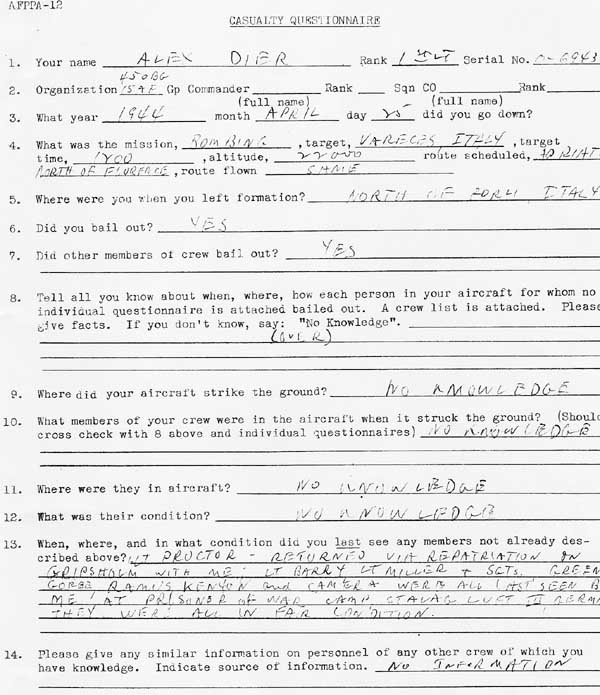 AFPPA-12
CASUALTY QUESTIONNAIRE
1. Your name ALEX DIER Rank 1st LT Serial No. O-6943
450BG
2. Organization 15AF Gp Commander Rank Sqn CO Rank
(full name) (full name)
3. What year 1944 month APRIL day 25 did you go down?
4. What was the mission, BOMBING , target, VARECES, ITALY , target
time, 1200 , altitude, 22000 route scheduled,
NORTH OF FLORENCE , route flown SAME
5. Where were you when you left formation? NORTH OF FORLI ITALY
6. Did you bail out? YES
7. Did other members of crew bail out? YES
8. Tell all you know about when, where, how each person in your aircraft for whom no
individual questionnaire is attached bailed out. A crew list is attached. Please
give facts. If you don't know, say: "No Knowledge".
(OVER)
9. Where did your aircraft strike the ground? NO KNOWLEDGE
10. What members of your crew were in the aircraft when it struck the ground? (Should
cross check with 8 above and individual questionnaires) NO KNOWLEDGE
11. Where were they in aircraft? NO KNOWLEDGE
12. What was their condition? NO KNOWLEDGE
13. When, where, and in what condition did you last see any members not already des-
cribed above? LT PROCTOR - RETURNED VIA REPATRIATION ON
GRIPSHOLM WITH ME; LT BARRY LT MILLER + SGTS. GREEN
RAMUS KENYON and CAMERA WERE ALL LAST SEEN B
ME AT PRISONER of WAR CAMP STALAG LUFT III GERMA
THEY WERE ALL IN FAR CONDITION.
14. Please give any similar information on personnel of any other crew of which you
have knowledge. Indicate source of information. NO INFORMATION